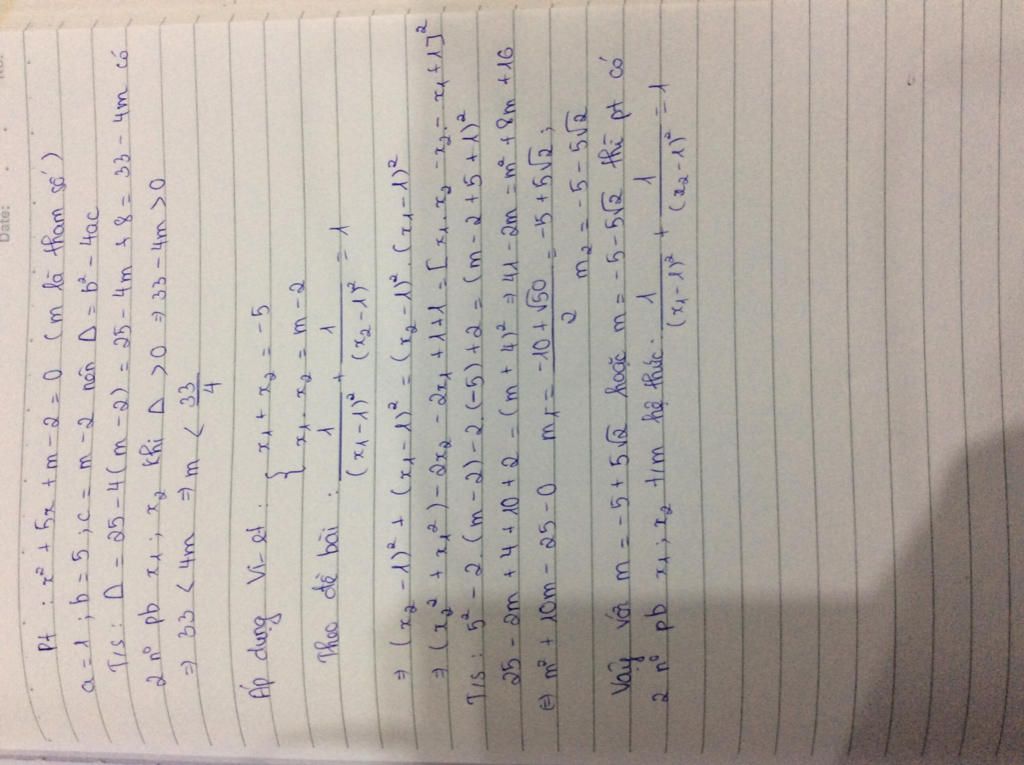 Date:
No:
Pt : x² + 5x + m - 2 = 0 (m là tham số)
a = 1 ; b = 5 ; c = m - 2 nên Δ = b² - 4ac
T/s : Δ = 25 - 4(m - 2) = 25 - 4m + 8 = 33 - 4m có
2 n⁰ pb x₁ ; x₂ khi Δ > 0 ⇒ 33 - 4m > 0
⇒ 33 < 4m ⇒ m < 33/4
Áp dụng Vi-et : { x₁ + x₂ = -5
x₁ . x₂ = m - 2
Theo đề bài : 1/(x₁ - 1)² + 1/(x₂ - 1)² = 1
⇒ (x₂ - 1)² + (x₁ - 1)² = (x₂ - 1)² . (x₁ - 1)²
⇒ (x₂² + x₁²) - 2x₂ - 2x₁ + 1 + 1 = [x₁ . x₂ - x₂ - x₁ + 1]²
T/s : 5² - 2.(m - 2) - 2.(-5) + 2 = (m - 2 + 5 + 1)²
25 - 2m + 4 + 10 + 2 = (m + 4)² ⇒ 41 - 2m = m² + 8m + 16
⇔ m² + 10m - 25 = 0 m₁ = (-10 + √50)/2 = -5 + 5√2 ;
m₂ = -5 - 5√2
Vậy với m = -5 + 5√2 hoặc m = -5 - 5√2 thì pt có
2 n⁰ pb x₁ ; x₂ t/m hệ thức : 1/(x₁ - 1)² + 1/(x₂ - 1)² = 1